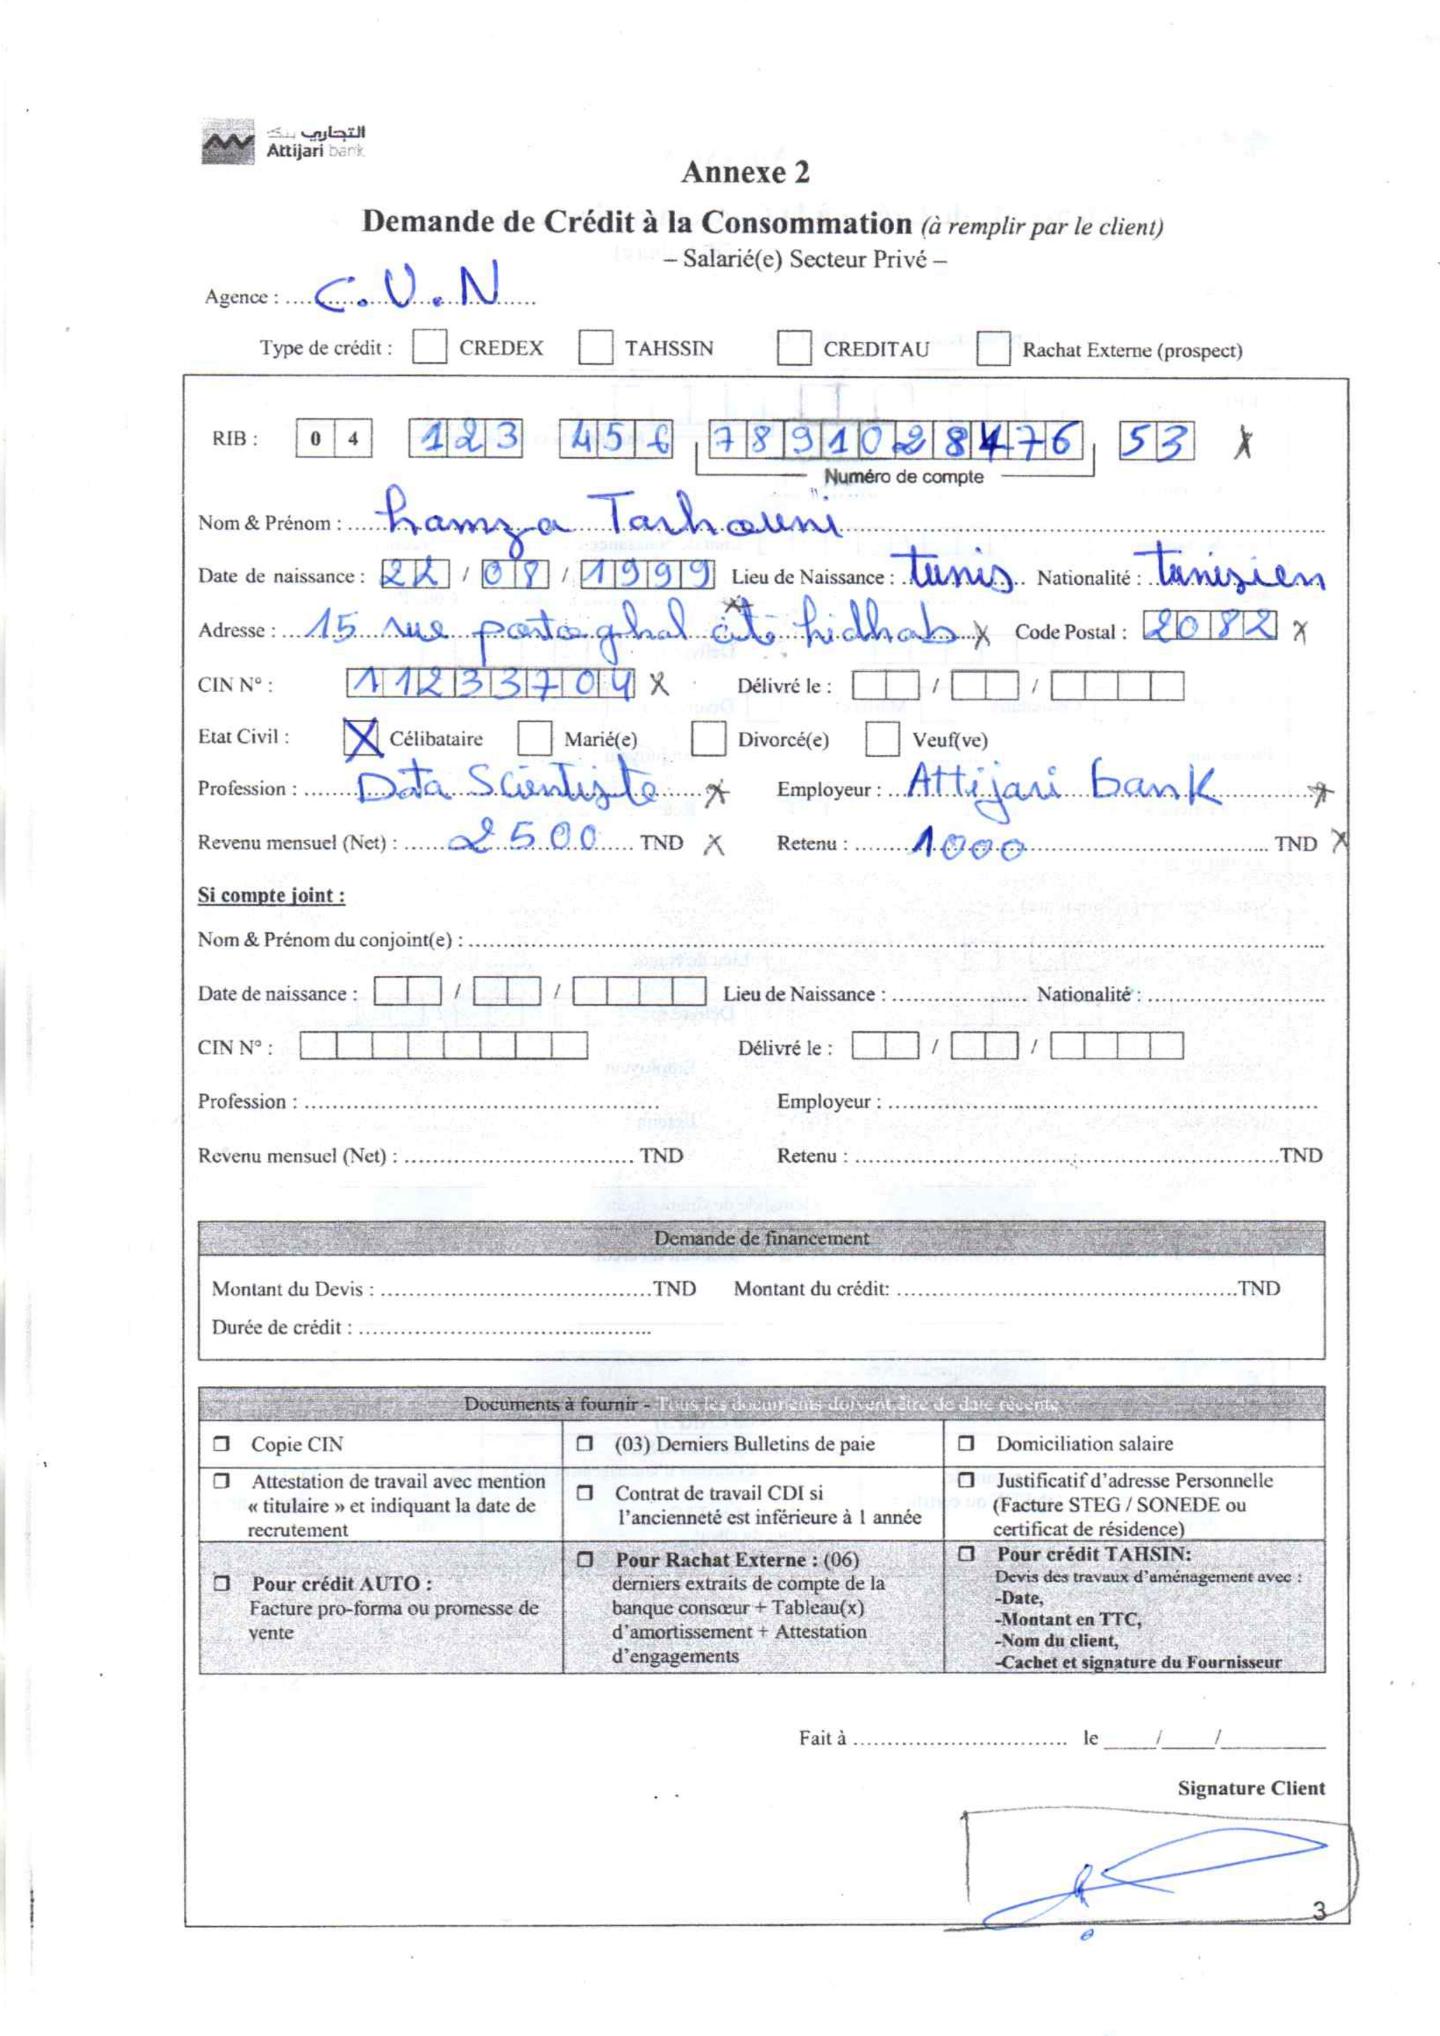 التجاري بنك
Attijari bank
Annexe 2
Demande de Crédit à la Consommation (à remplir par le client)
– Salarié(e) Secteur Privé –
Agence : C.U.N
Type de crédit : CREDEX TAHSSIN CREDITAU Rachat Externe (prospect)
RIB : 04 123 456 7891028476 53 X
Numéro de compte
Nom & Prénom : hamza Tarhouni
Date de naissance : 22 / 08 / 1999 Lieu de Naissance : tunis Nationalité : tunisien
Adresse : 15 rue portoghal cité hidhab X Code Postal : 2082 X
CIN N° : 11233704 X Délivré le : / /
Etat Civil : X Célibataire Marié(e) Divorcé(e) Veuf(ve)
Profession : Data Scientiste X Employeur : Attijari bank X
Revenu mensuel (Net) : 2500 TND X Retenu : 1000 TND X
Si compte joint :
Nom & Prénom du conjoint(e) :
Date de naissance : / / Lieu de Naissance : Nationalité :
CIN N° : Délivré le : / /
Profession : Employeur :
Revenu mensuel (Net) : TND Retenu : TND
Demande de financement
Montant du Devis : TND Montant du crédit: TND
Durée de crédit :
Documents à fournir - Tous les documents doivent être de date récente
Copie CIN
(03) Derniers Bulletins de paie
Domiciliation salaire
Attestation de travail avec mention
« titulaire » et indiquant la date de
recrutement
Contrat de travail CDI si
l'ancienneté est inférieure à 1 année
Justificatif d'adresse Personnelle
(Facture STEG / SONEDE ou
certificat de résidence)
Pour crédit AUTO :
Facture pro-forma ou promesse de
vente
Pour Rachat Externe : (06)
derniers extraits de compte de la
banque consœur + Tableau(x)
d'amortissement + Attestation
d'engagements
Pour crédit TAHSIN:
Devis des travaux d'aménagement avec :
-Date,
-Montant en TTC,
-Nom du client,
-Cachet et signature du Fournisseur
Fait à le / /
Signature Client
3